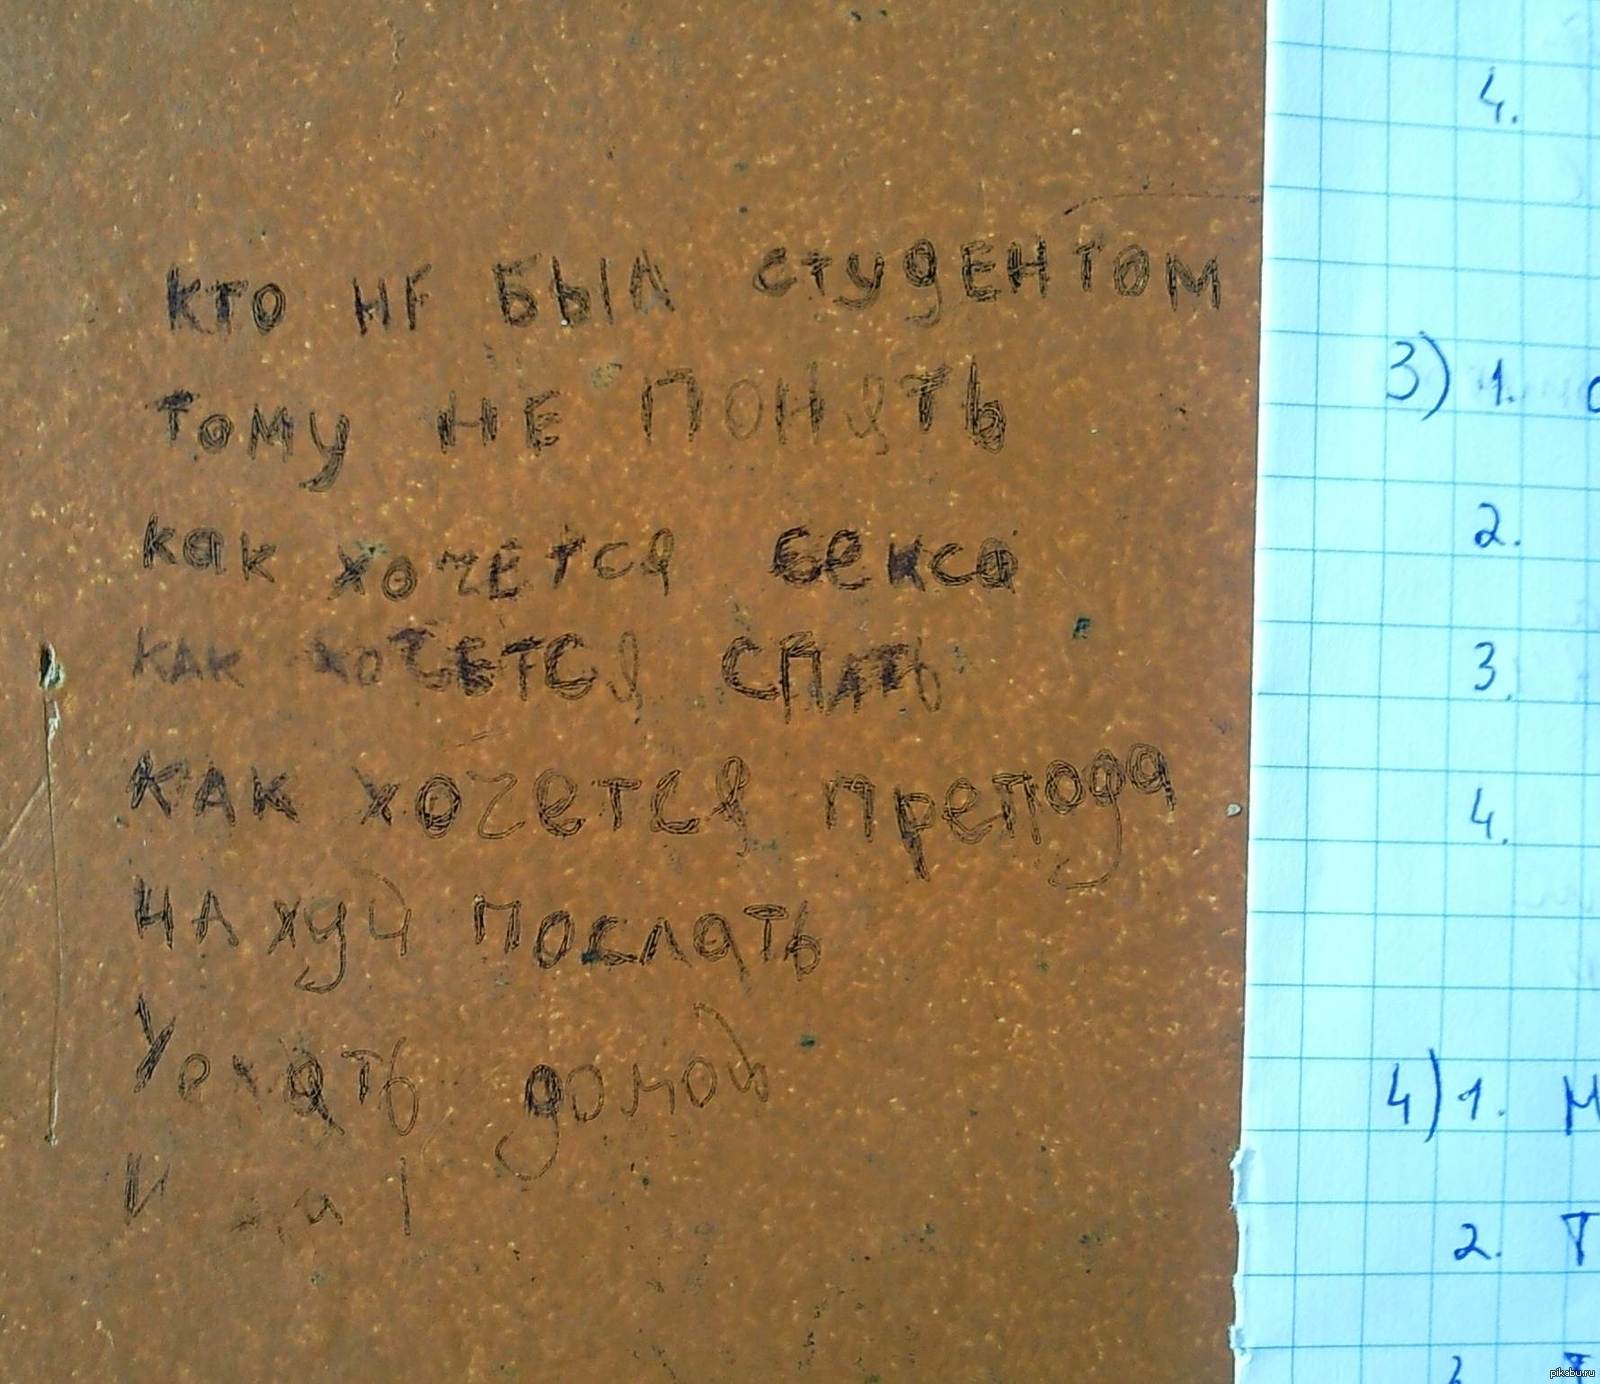 кто не был студентом
тому не понять
как хочется секса
как хочется спать
как хочется препода
на хуй послать
Уехать домой
и
4.
3) 1.
2.
3.
4.
4) 1. М
2. Т
pikabu.ru